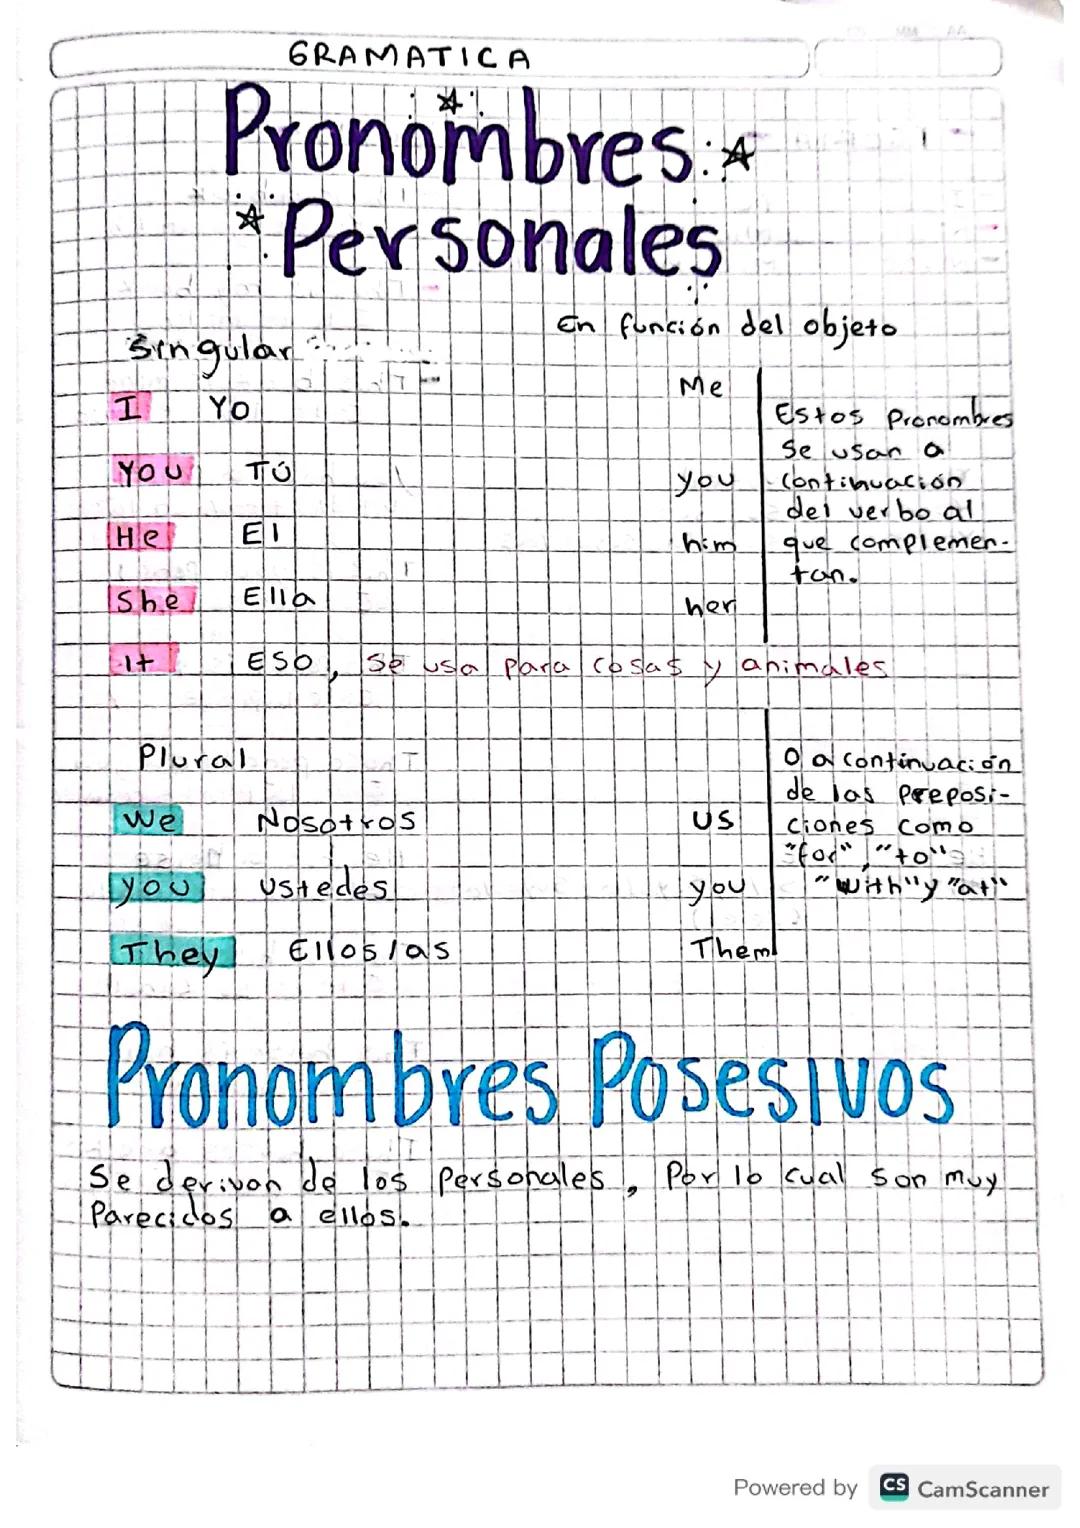 GRAMATICA
Pronombres
Personales
En función del objeto
Singular
Me
I Yo
Estos Pronombres
Se usan a
You TÚ you continuación
del verbo al
He El him que complemen-
tan.
She Ella her
It ESO, Se usa para cosas y animales
Plural
O a continuación
de las preposi-
We Nosotros us ciones como
"for", "to"
you ustedes you "with" y "at"
They Ellos/as Them
Pronombres Posesivos
Se derivan de los Personales, Por lo cual son muy
Parecidos a ellos.
Powered by CS CamScanner